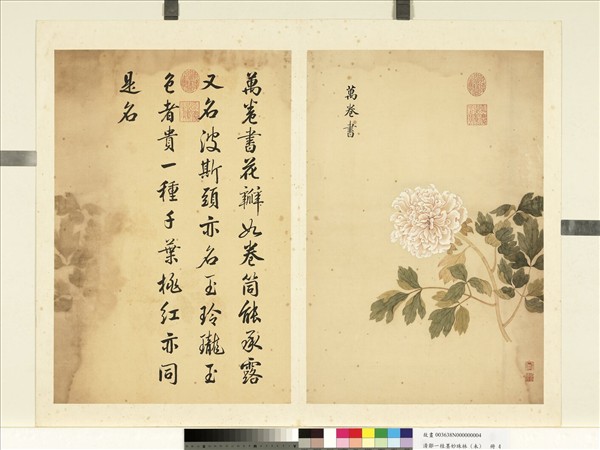 萬卷書
萬卷書花瓣如卷筒能承露
又名波斯頭亦名玉玲瓏玉
色者貴一種千葉桃紅亦同
是名
故畫 003638N000000004
清鄒一桂畫